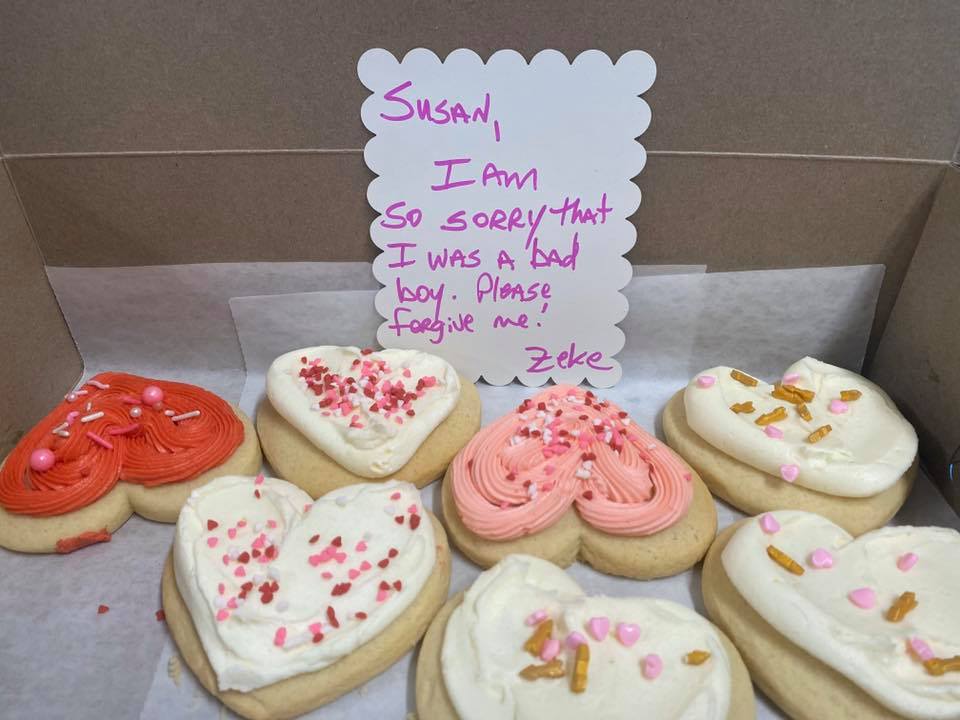 Susan,
I Am
So sorry that
I was a bad
boy. Please
forgive me!
Zeke